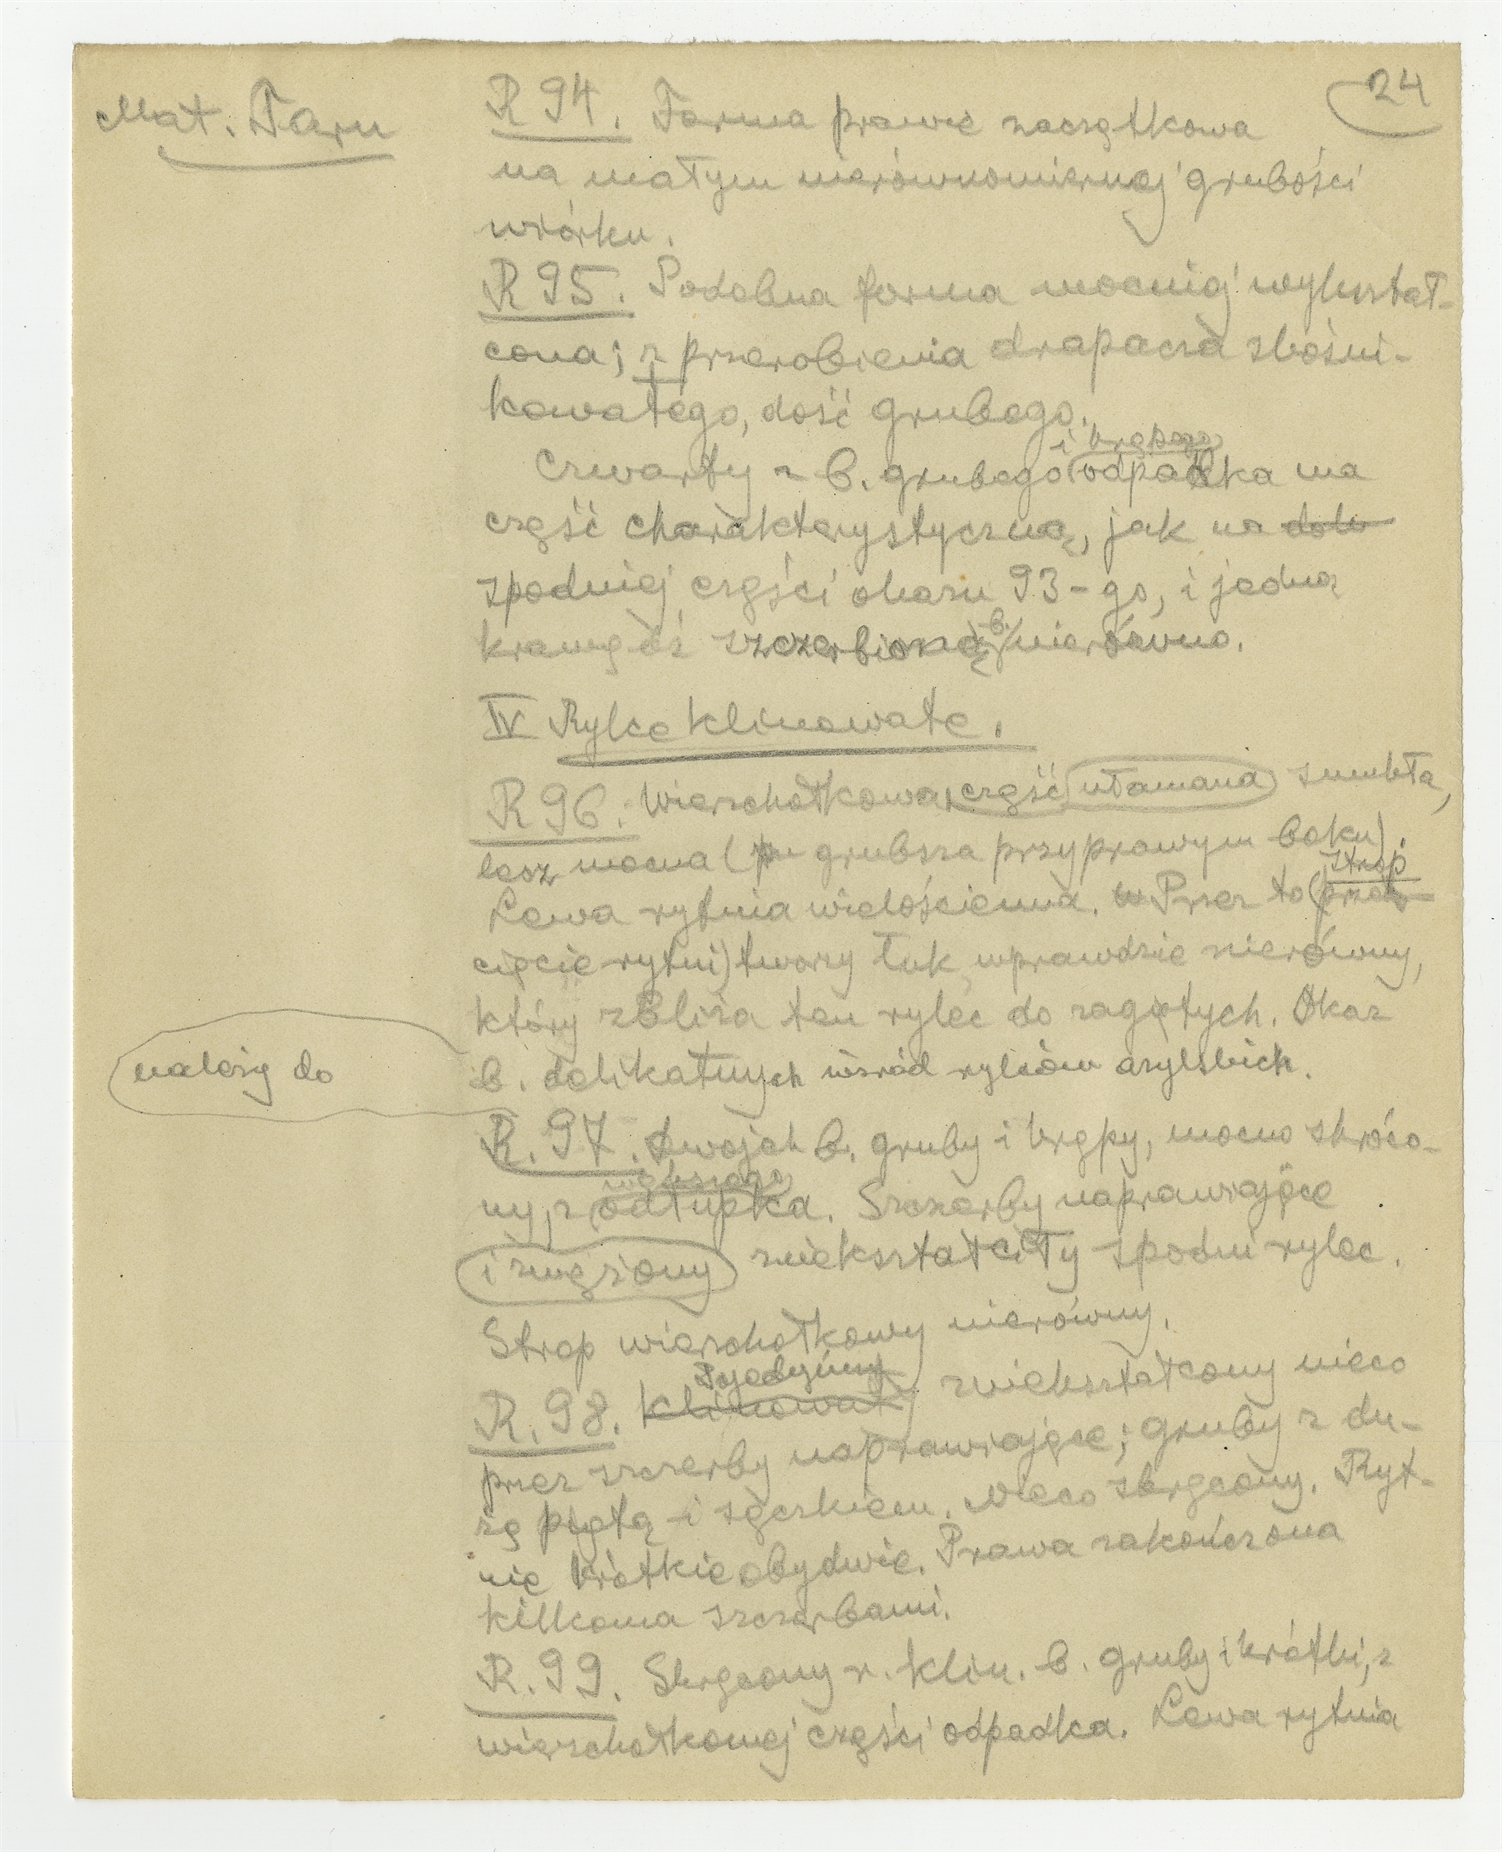 24
Mat. Taru
R 94. Forma prawie zaczątkowa
na małym nierównomiernej grubości
wiórku.
R 95. Podobna forma mocniej wykształ-
cona; z przerobienia drapacza zbośni-
kowatego, dość grubego.
i krępego
Czwarty z b. grubego odpadka ma
część charakterystyczną, jak na dole
spodniej części okazu 93-go, i jedną
krawędź szczerbioną b. nierówno.
IV Rylce klinowate.
R 96. Wierzchołkowa część ułamana smukła,
lecz mocna (grubsza przy prawym boku).
strop
Lewa rytnia wielościenna. Przez to (prze
cięcie rytni) tworzy łuk, wprawdzie nierówny,
który zbliża ten rylec do zagiętych. Okaz
należy do
b. delikatnych wśród rylców azylskich.
R. 97. Dwojak b. gruby i krępy, mocno skróco-
większego
ny, z odłupka. Szczerby naprawiające
i zwężony zniekształciły spodni rylec.
Strop wierzchołkowy nierówny.
Pojedyńczy
R. 98. Klinowaty zniekształcony nieco
przez szczerby naprawiające; gruby z du-
żą piętą i sęczkiem. Nieco skręcony. Ryt-
nie krótkie obydwie. Prawa zakończona
kilkoma szczerbami.
R. 99. Skręcony r. klin. b. gruby i krótki, z
wierzchołkowej części odpadka. Lewa rytnia